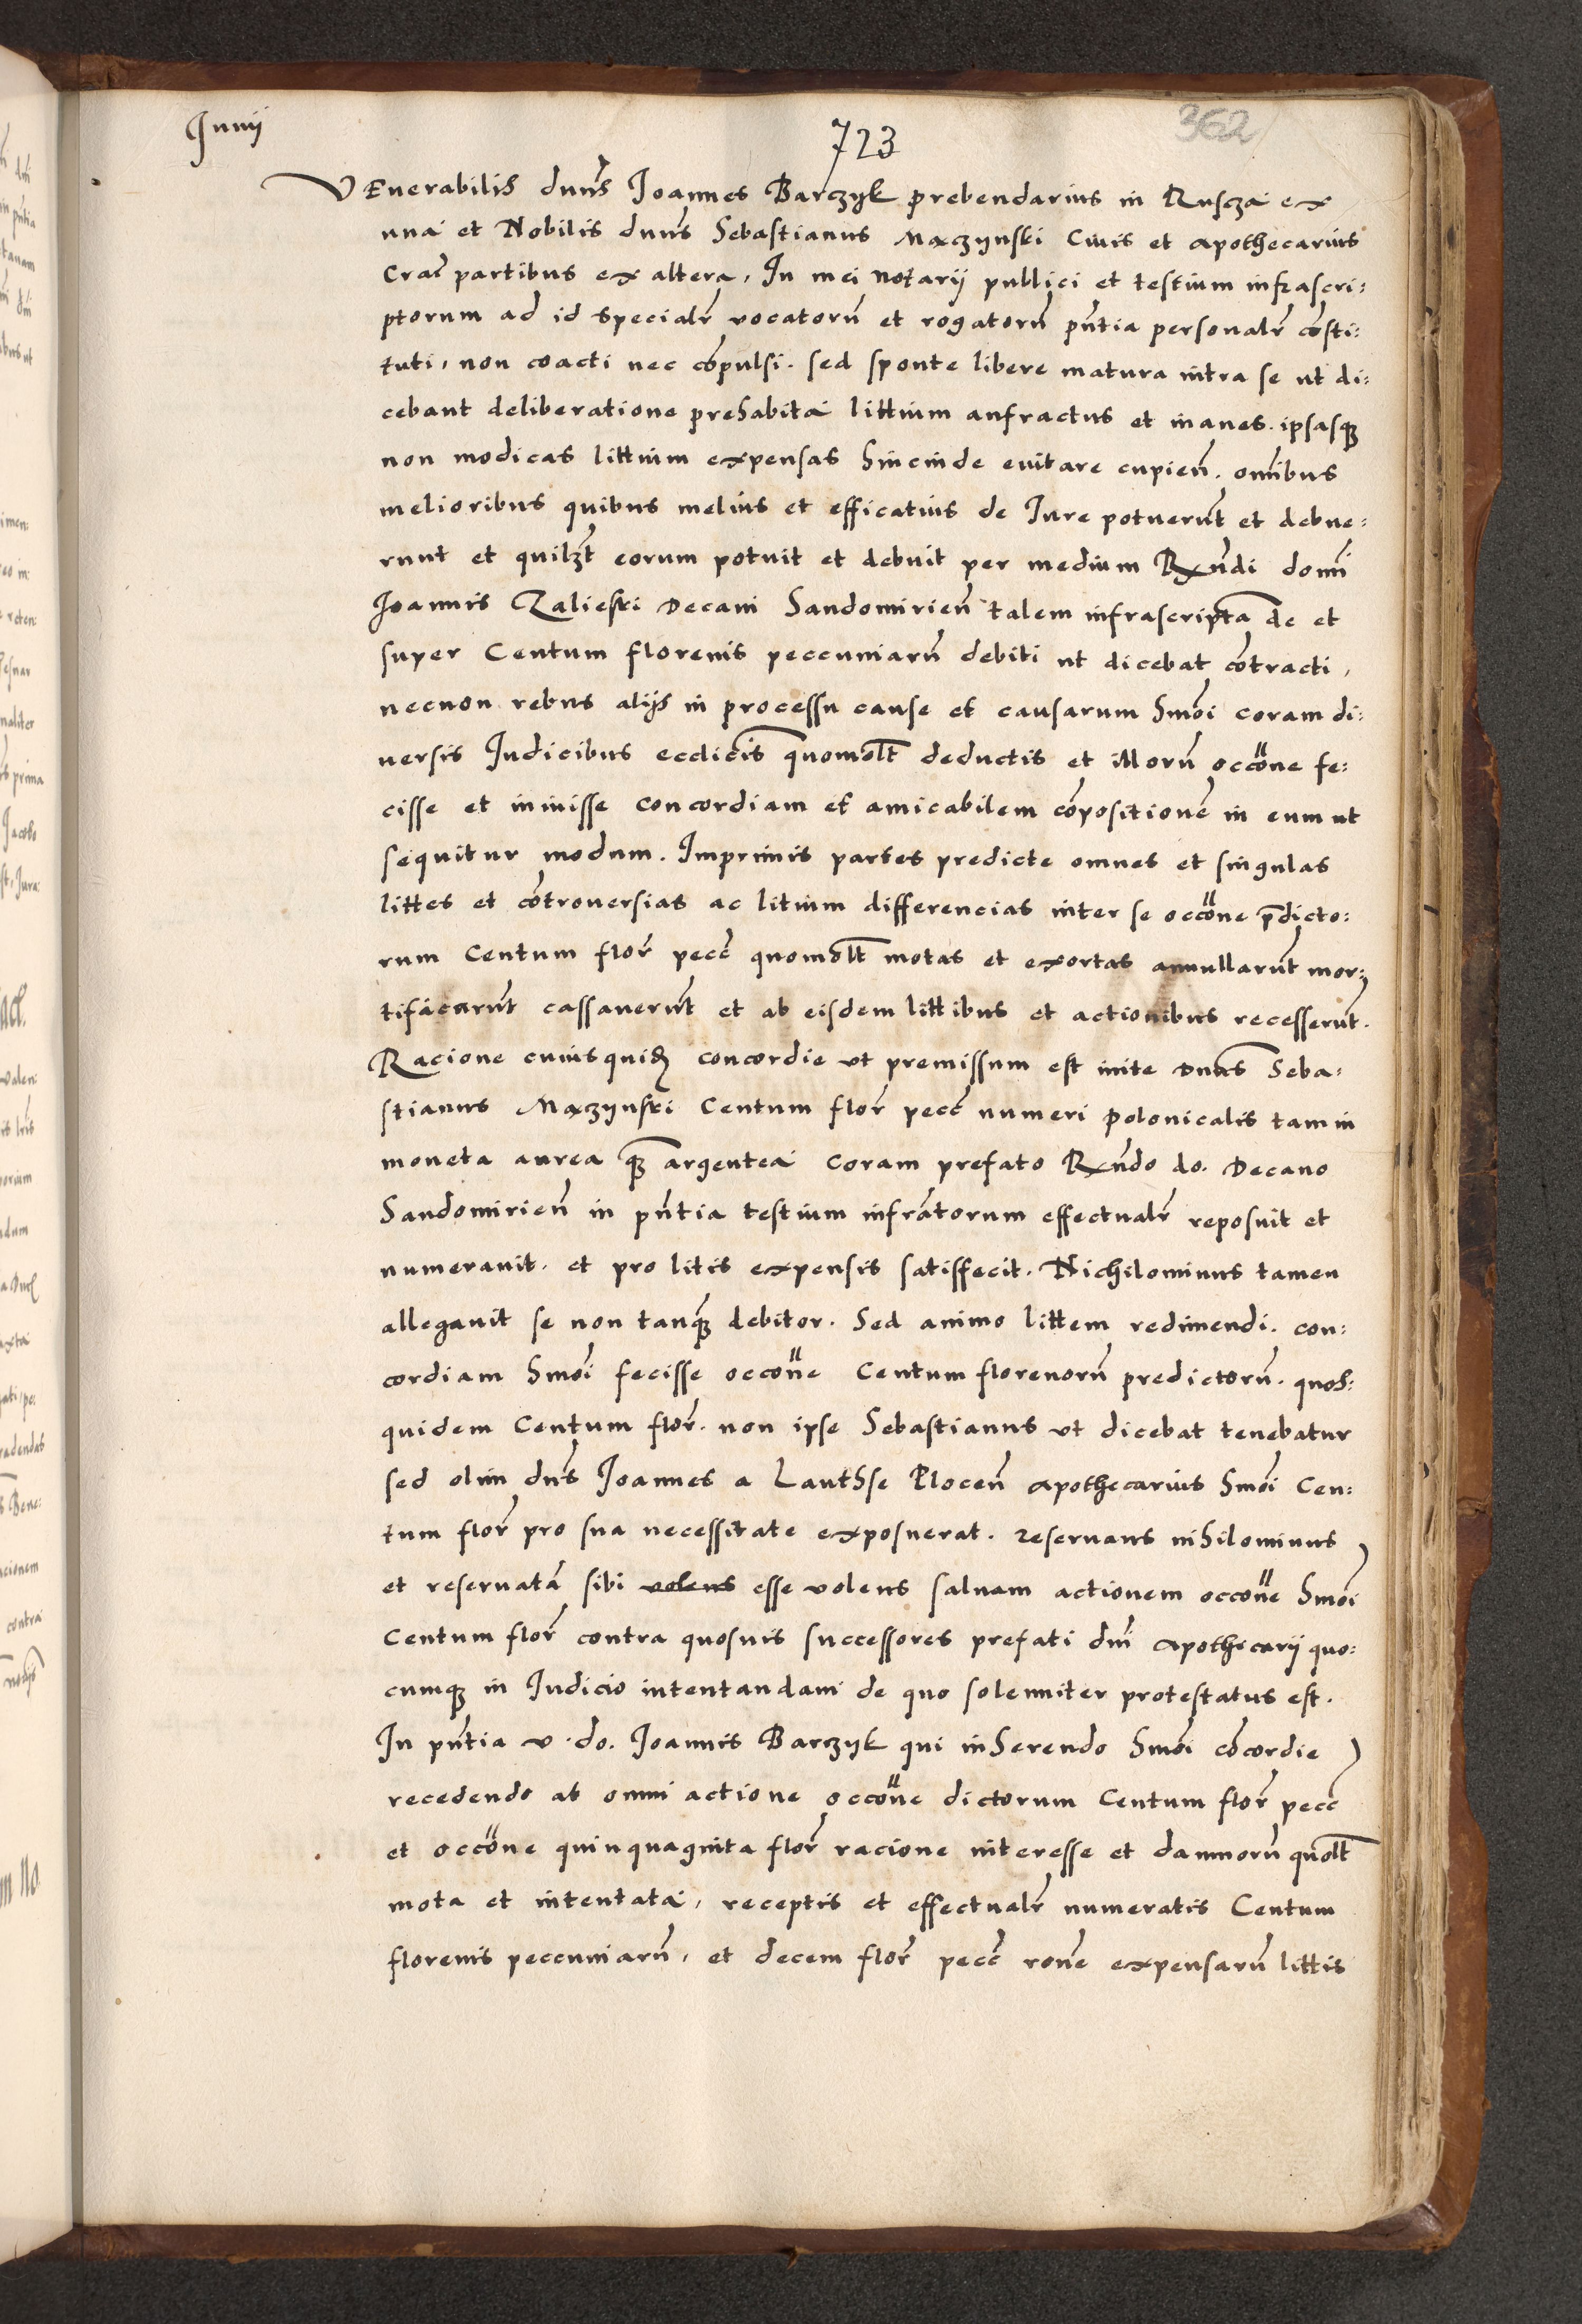 Junij
723
362
VEnerabilis dnns Joannes Barczyk prebendarius in Ruscza ex
una et Nobilis dnns Sebastianus Maczynski Civis et apothecarius
Crać partibus ex altera, In mei notarij publici et testium infrascri:
ptorum ad id specialr̃ vocatorũ et rogatorũ pñtia personalr̃ cõsti:
tuti, non coacti nec cõpulsi. sed sponte libere matura intra se ut di:
cebant deliberatione prehabita littium anfractus et inanes. ipsasq3
non modicas littium expensas hincinde evitare cupieñ. omnibus
melioribus quibus melius et efficatius de Jure potuerũt et debue:
runt et quilzt̃ eorum potuit et debuit per medium Rxñdi domĩ
Joannis Zalieski Decani Sandomirieñ talem infrascriptã de et
super Centum florenis peccuniarũ debiti ut dicebat cõtracti,
necnon rebus alijs in processu cause et causarum hm̃oi coram di:
versis Judicibus eccl̃icis quomol̃t deductis et illorũ occõne fe:
cisse et inivisse concordiam et amicabilem cõpositionẽ in eum ut
sequitur modum. Imprimis partes predicte omnes et singulas
littes et cõtroversias ac litium differencias inter se occõne p̃dicto:
rum Centum flor̃ pecč quomol̃t motas et exortas annullarũt mor:
tificarũt cassaverũt et ab eisdem littibus et actionibus recesserũt.
Racione cuiusquid3 concordie ut premissum est inite Dnns Seba:
stianus Maczynski Centum flor̃ pecč numeri polonicalis tam in
moneta aurea q3 argentea coram prefato Rxñdo do. Decano
Sandomirieñ in pñtia testium infrãtorum effectualr̃ reposuit et
numeravit. et pro litis expensis satisfecit. Nichilominus tamen
allegavit se non tanq̃3 debitor. Sed animo littem redimendi. con:
cordiam hm̃oi fecisse occõne Centum florenorũ predictorũ. quos:
quidem Centum flor̃. non ipse Sebastianus ut dicebat tenebatur
sed olim dñs Joannes a Lauthse Ploceñ apothecarius hm̃oi Cen:
tum flor̃ pro sua necessitate exposuerat. reservans nihilominus
et reservatã sibi volens esse volens salvam actionem occõne hm̃oi
Centum flor̃ contra quosvis successores prefati dñi apothecarij quo:
cumq3 in Judicio intentandam de quo solenniter protestatus est.
In pñtia v. do. Joannis Barczyk qui inherendo hm̃oi cõcordie
recedendo ab omni actione occõne dictorum Centum flor̃ pecč
et occõne quinquaginta flor̃ racione interesse et damnorũ quol̃t
mota et intentata, receptis et effectualr̃ numeratis Centum
florenis peccuniarũ, et decem flor̃ pecč rõne expensarũ littis